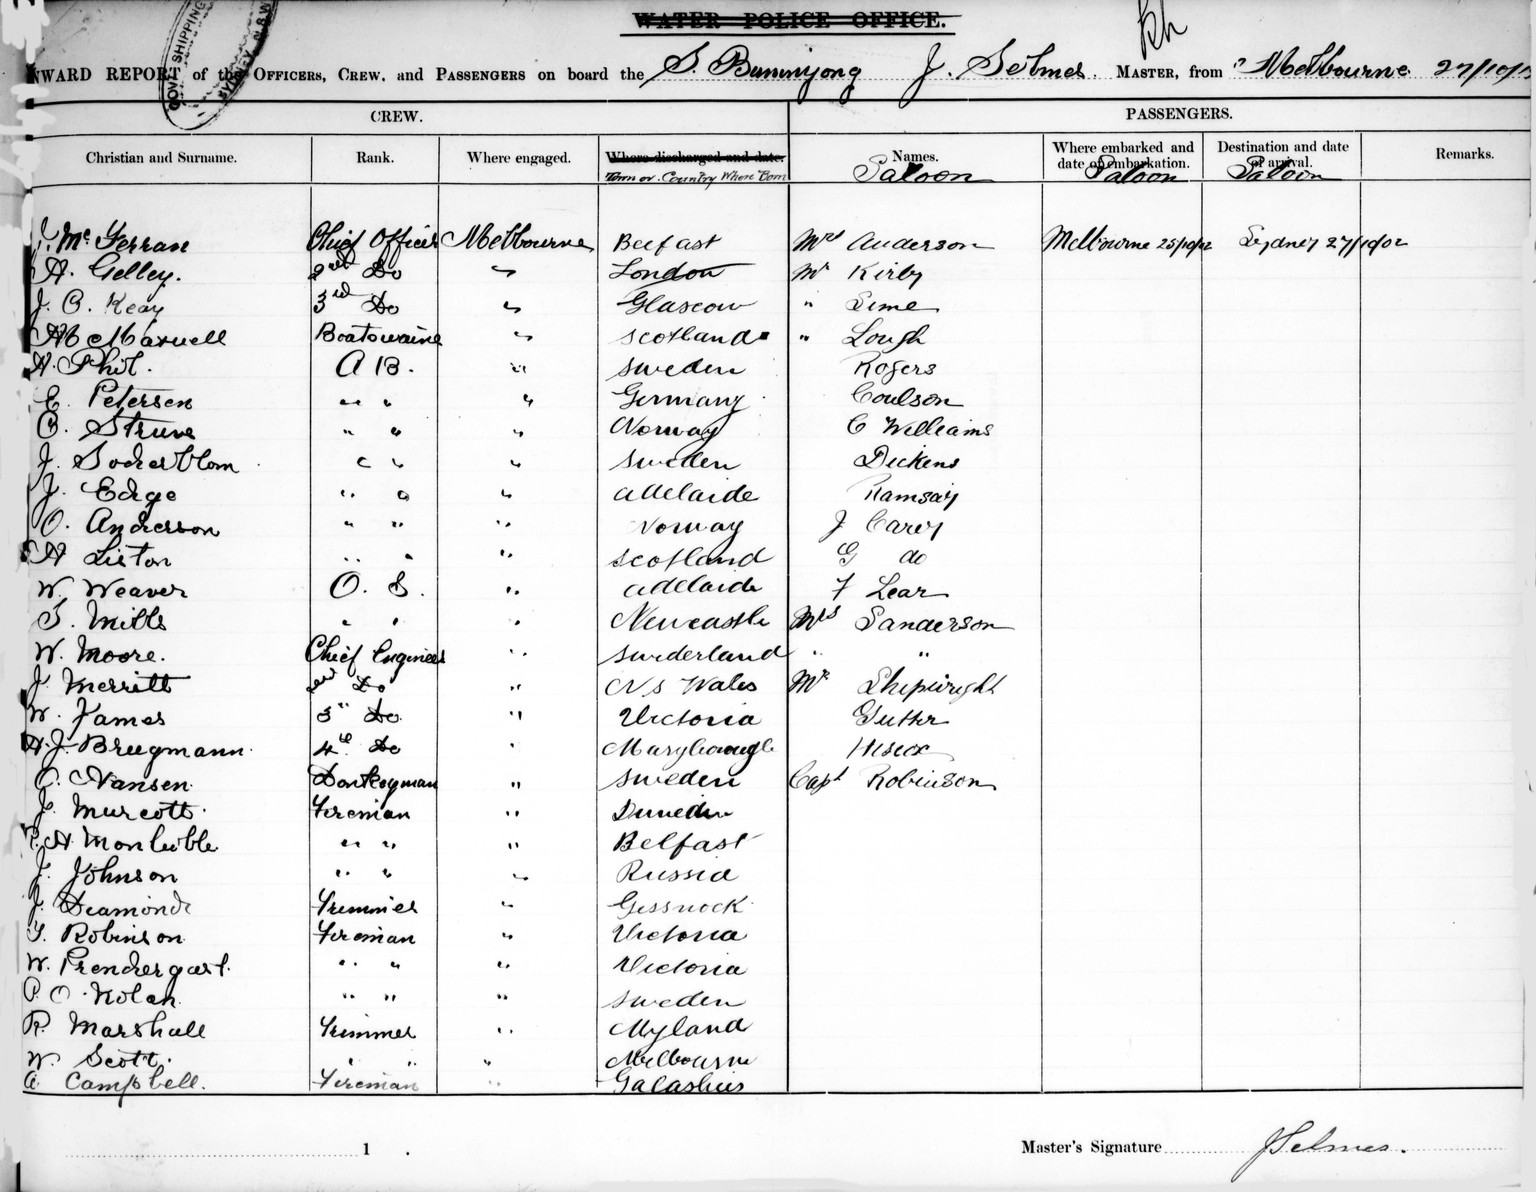 WATER POLICE OFFICE.
GOVT SHIPPING
SYDNEY N.S.W.
INWARD REPORT of the OFFICERS, CREW, and PASSENGERS on board the S. Buninyong J. Selmes. MASTER, from Melbourne 27/10/
CREW. PASSENGERS.
Christian and Surname. Rank. Where engaged. Where discharged and date. Names. Where embarked and date of embarkation. Destination and date of arrival. Remarks.
Town or Country Where Born Saloon Saloon Saloon
J. Mc Ferran Chief Officer Melbourne Belfast Mrs Anderson Melbourne 25/10/02 Sydney 27/10/02
A. Gelley. 2nd Do " London Mr Kirby
J. B. Keay 3rd Do " Glascow " Sime
Maxwell Boatswaine " Scotland " Lough
Phil. A B. " Sweden Rogers
E. Petersen " " " Germany Coulson
B. Struve " " " Norway C Williams
J. Soderblom " " " Sweden Dickens
J. Edge " " " Adelaide Ramsay
O. Anderson " " " Norway J Carey
A Liston " " " Scotland G do
W. Weaver O. S. " Adelaide F Lear
S. Mills " " " Newcastle Mrs Sanderson
W. Moore. Chief Engineer " Sunderland " "
J. Merritt 2nd Do " N S Wales Mr Shipwright
W. James 3" Do " Victoria
A. J. Bruegmann. 4th Do " Maryborough
Nansen Donkeyman " Sweden Capt Robinson
J. Murcott. Fireman " Dunedin
" " " Belfast
J. Johnson " " " Russia
J. Diamond Trimmer " Gessnock
Robinson Fireman " Victoria
W. Prendergast. " " " Victoria
P. O. Nolan " " " Sweden
R. Marshall Trimmer " Myland
W. Scott. " " " Melbourne
A Campbell. Fireman " Galashies
1 Master's Signature J Selmes.